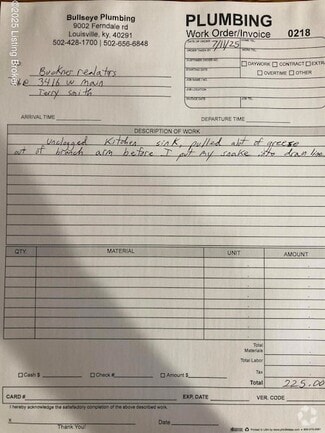 ©2025 Listing Broker
Bullseye Plumbing
9002 Ferndale rd
Louisville, ky, 40291
502-428-1700 | 502-656-6848
PLUMBING
Work Order/Invoice 0218
DATE OF ORDER 7/14/25
ORDER TAKEN BY
CUSTOMER ORDER NO.
STARTING DATE
JOB NAME/NO.
JOB LOCATION
DAYWORK CONTRACT EXTRA
OVERTIME OTHER
Buckner realators
3416 w main
Terry smith
ARRIVAL TIME
DEPARTURE TIME
DESCRIPTION OF WORK
Unclogged Kitchen sink, pulled alot of grease
out of branch arm before I put my snake into drain line
QTY. MATERIAL UNIT AMOUNT
Total Materials
Total Labor
Tax
Cash $ Check # Amount $
Total 225.00
CARD # EXP. DATE VER. CODE
I hereby acknowledge the satisfactory completion of the above described work.
X Date
Thank You!